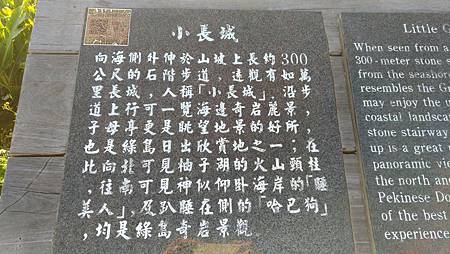 小長城
向海側斜伸於山坡上長約300
公尺的石階步道，遠觀有如萬
里長城，人稱「小長城」。沿步
道上行可一覽海邊奇岩麗景，
子母亭更是眺望地景的好所，
也是綠島日出欣賞地之一；在
此，向北可見柚子湖的火山頸柱
，往南可見神似仰卧海岸的「睡
美人」，及趴睡在側的「哈巴狗」
，均是綠島奇岩景觀。
Little G
When seen from a
300-meter stone s
from the seashor
resembles the Gr
may enjoy the u
coastal landsca
stone stairway
up is a great
panoramic vie
the north an
Pekinese Do
of the best
experience